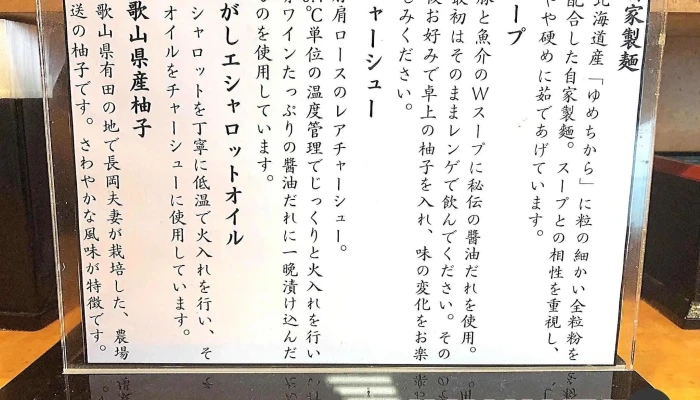 家製麺
北海道産「ゆめちから」に粒の細かい全粒粉を
配合した自家製麺。スープとの相性を重視し、
や硬めに茹であげています。
ープ
豚と魚介のWスープに秘伝の醬油だれを使用。
最初はそのままレンゲで飲んでください。その
後お好みで卓上の柚子を入れ、味の変化をお楽
しみください。
ャーシュー
肩ロースのレアチャーシュー。
℃単位の温度管理でじっくりと火入れを行い
ワインたっぷりの醬油だれに一晩漬け込んだ
ものを使用しています。
がしエシャロットオイル
シャロットを丁寧に低温で火入れを行い、そ
オイルをチャーシューに使用しています。
歌山県産柚子
歌山県有田の地で長岡夫妻が栽培した、農場
送の柚子です。さわやかな風味が特徴です。